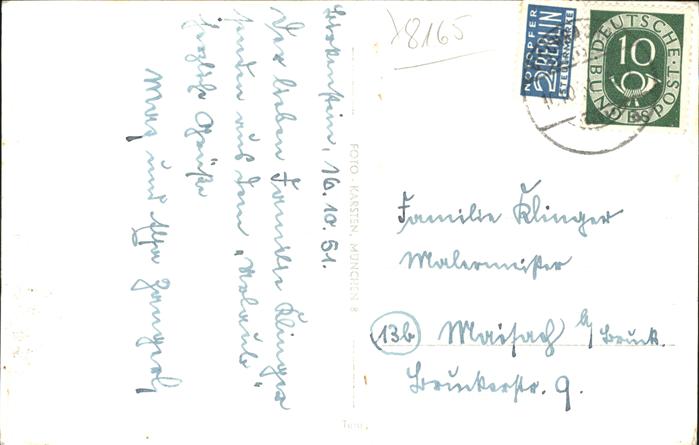 Birkenstein, 16.10.51.
Der lieben Familie Klinger
senden aus dem „Urlaub"
herzliche Grüße
Max und
FOTO-KARSTEN, MÜNCHEN 8
)8165
NOTOPFER
2 BERLIN
STEUERMARKE
DEUTSCHE
BUNDESPOST
10
Familie Klinger
Malermeister
13b Maisach b/Bruck.
Bruckerstr. 9.